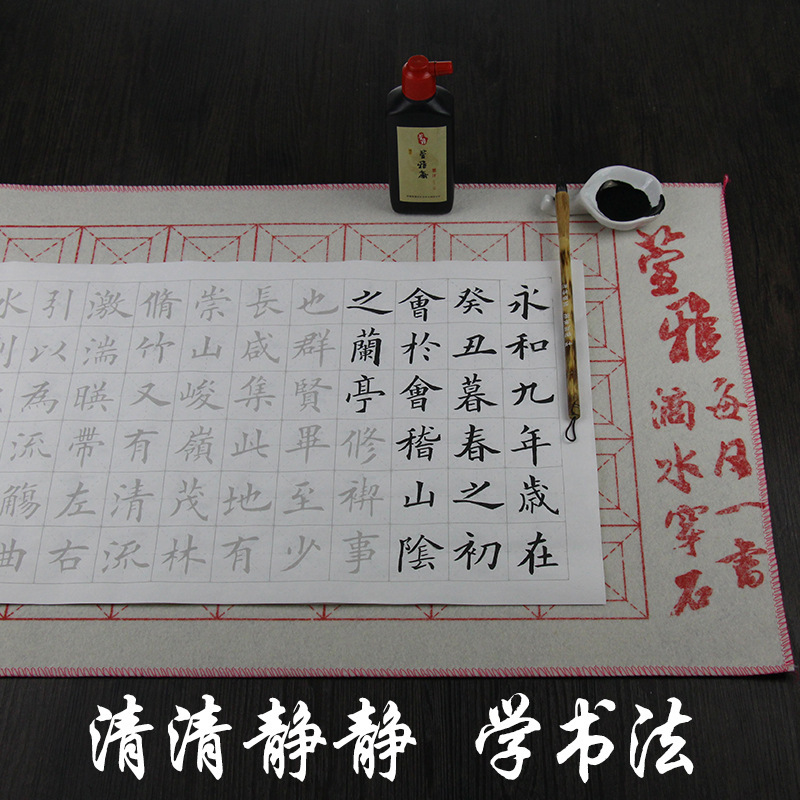 萱雅
每日一書
滴水穿石
永和九年歲在
癸丑暮春之初
會於會稽山陰
之蘭亭修禊事
也群賢畢至少
長咸集此地有
崇山峻嶺茂林
脩竹又有清流
激湍暎帶左右
引以為流觴曲
水
清清静静 学书法